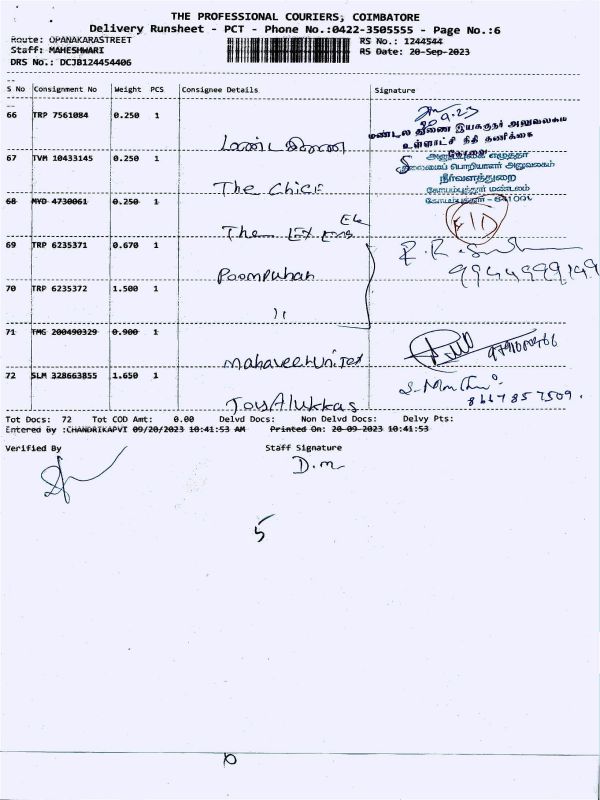 THE PROFESSIONAL COURIERS, COIMBATORE
Delivery Runsheet - PCT - Phone No.:0422-3505555 - Page No.:6
Route: OPANAKARASTREET
RS No.: 1244544
Staff: MAHESHWARI
RS Date: 20-Sep-2023
DRS No.: DCJB124454406
S No Consignment No Weight PCS Consignee Details Signature
66 TRP 7561084 0.250 1
20.9.23
மண்டல துணை இயக்குநர் அலுவலகம்
உள்ளாட்சி நிதி தணிக்கை
கோவை
67 TVM 10433145 0.250 1
The Chief
தலைமைப் பொறியாளர் அலுவலகம்
நீர்வளத்துறை
கோயம்புத்தூர் மண்டலம்
68 MYD 4730061 0.250 1
The
69 TRP 6235371 0.670 1
Poompuhar
70 TRP 6235372 1.500 1
''
71 TMG 200490329 0.900 1
72 SLM 328663855 1.650 1
JoyAlukkas
8667857509.
Tot Docs: 72 Tot COD Amt: 0.00 Delvd Docs: Non Delvd Docs: Delvy Pts:
Entered By :CHANDRIKAPVI 09/20/2023 10:41:53 AM Printed On: 20-09-2023 10:41:53
Verified By Staff Signature
D.m
5
10